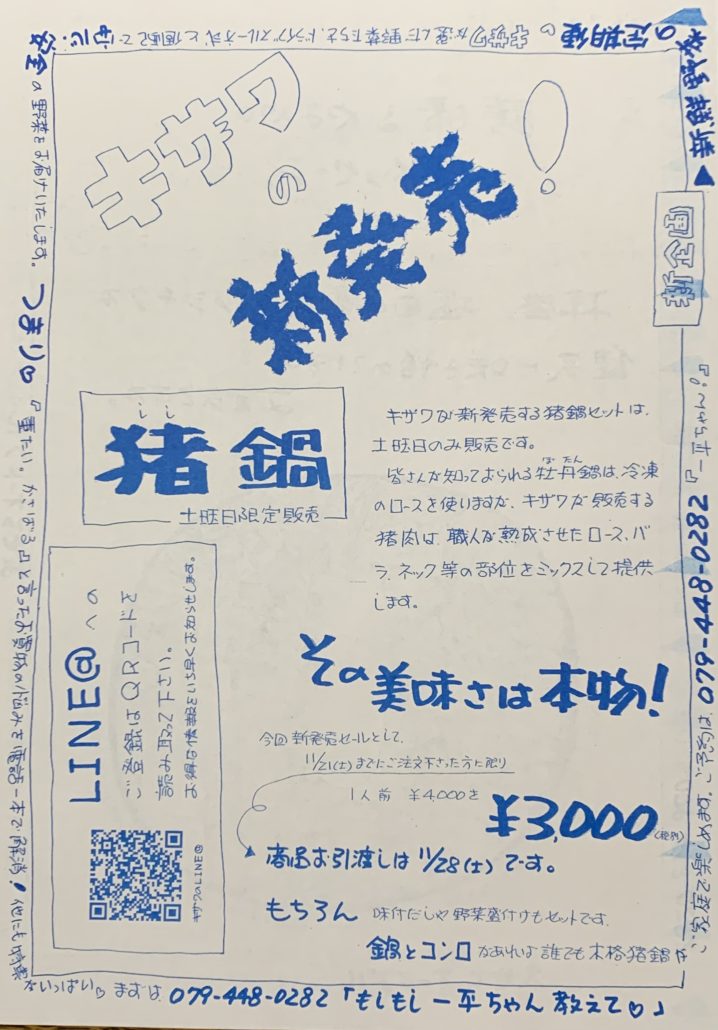 キザワ
の
新発売!
新企画
しし
猪鍋
土曜日限定販売
キザワが新発売する猪鍋セットは、
土曜日のみ販売です。
皆さんが知っておられる牡丹鍋は、冷凍
ぼたん
のロースを使いますが、キザワが販売する
猪肉は、職人が熟成させたロース、バ
ラ、ネック等の部位をミックスして提供
します。
その美味さは本物!
今回新発売セールとして、
11/21(土)までにご注文下さった方に限り
1人前 ¥4,000を
¥3,000(税別)
商品お引渡しは11/28(土)です。
もちろん 味付だしや野菜盛付けもセットです。
鍋とコンロがあれば誰でも本格猪鍋が
ご家庭で楽しめます。ご予約は 079-448-0282『一平ちゃん〜。』
LINE@への
ご登録はQRコードを
読み取って下さい。
お得な情報をいち早くお知らせします。
キザワのLINE@
▶新鮮野菜
の定期便。キザワが選んだ野菜たちを、ドライブスルー方式と個配で安心・
安全の野菜をお届けいたします。つまり♡『重たい。かさばる』と言ったお買物の悩みを電話一本で解消!他にも特典
がいっぱい♡まずは 079-448-0282「もしもし一平ちゃん教えて♡」